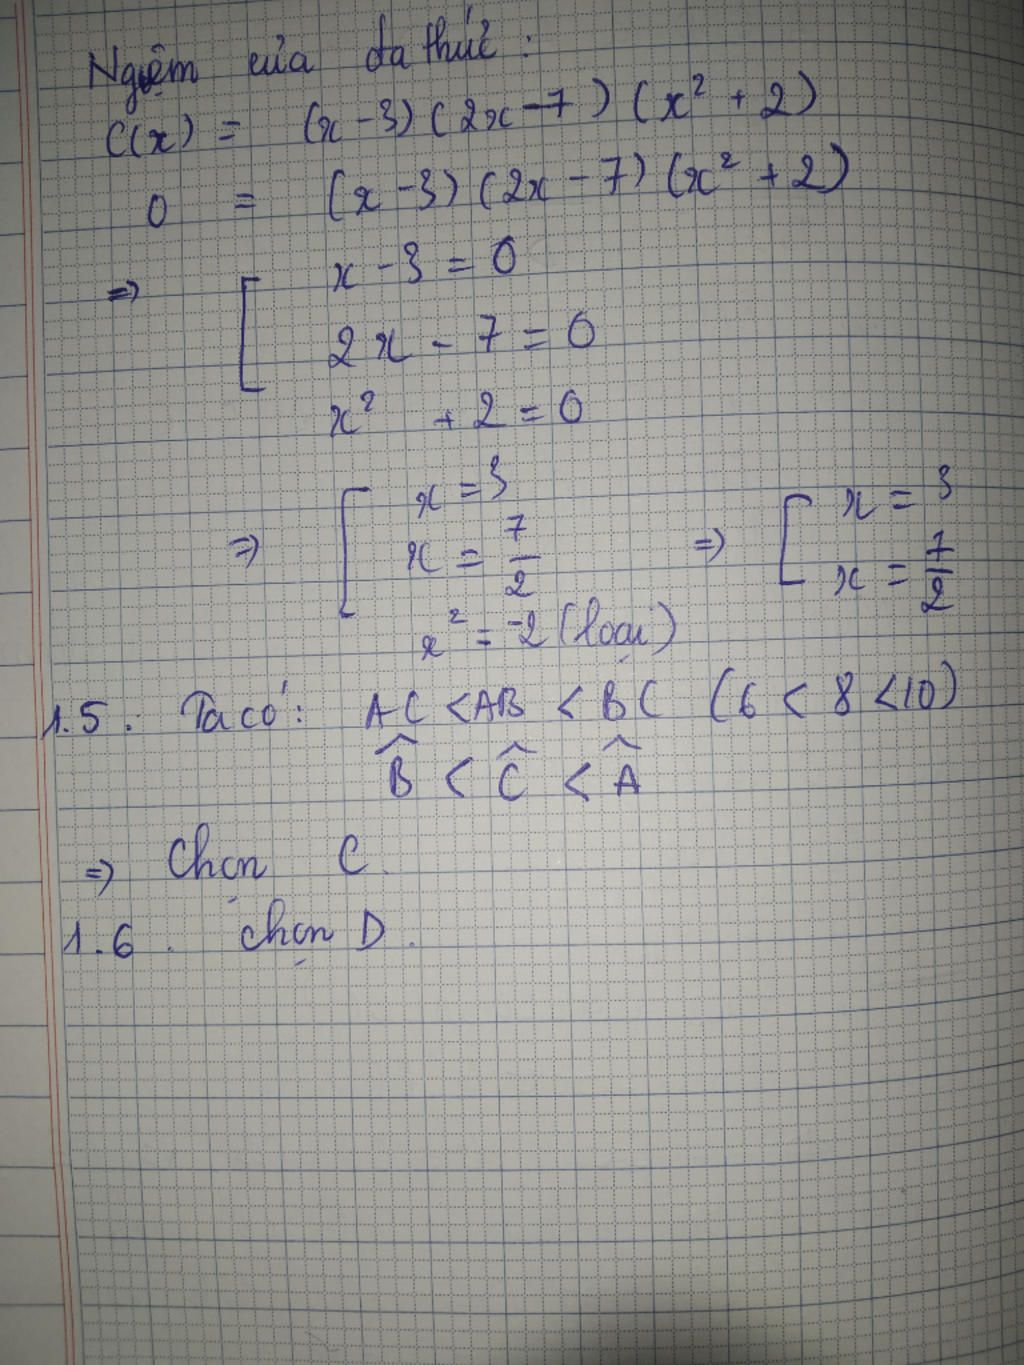 Nghiệm của đa thức:
C(x) = (x-3)(2x-7)(x² + 2)
0 = (x-3)(2x-7)(x² + 2)
=> [ x - 3 = 0
2x - 7 = 0
x² + 2 = 0
=> [ x = 3
x = 7/2
x² = -2 (loại)
=> [ x = 3
x = 7/2
1.5. Ta có: AC < AB < BC (6 < 8 < 10)
B̂ < Ĉ < Â
=> Chọn C.
1.6. chọn D.